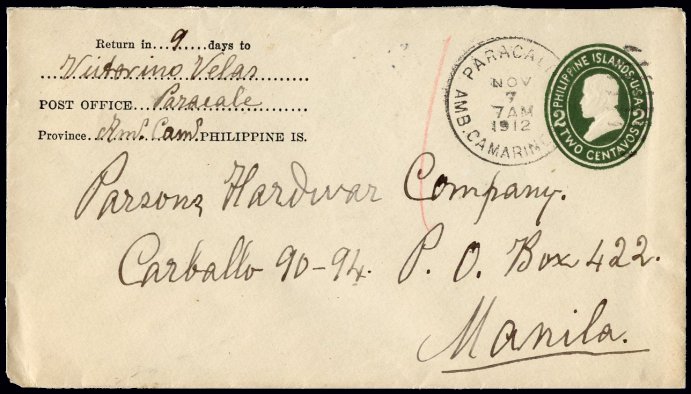 Return in...9.....days to
Victorino Velas
POST OFFICE...Paracale
Province...Am.s Cam.s PHILIPPINE IS.
PARACALE
NOV
7
7 AM
1912
AMB. CAMARINE
PHILIPPINE ISLANDS·U.S.A.
2 TWO CENTAVOS 2
Parsons Hardwar Company.
Carballo 90-94. P. O. Box 422.
Manila.